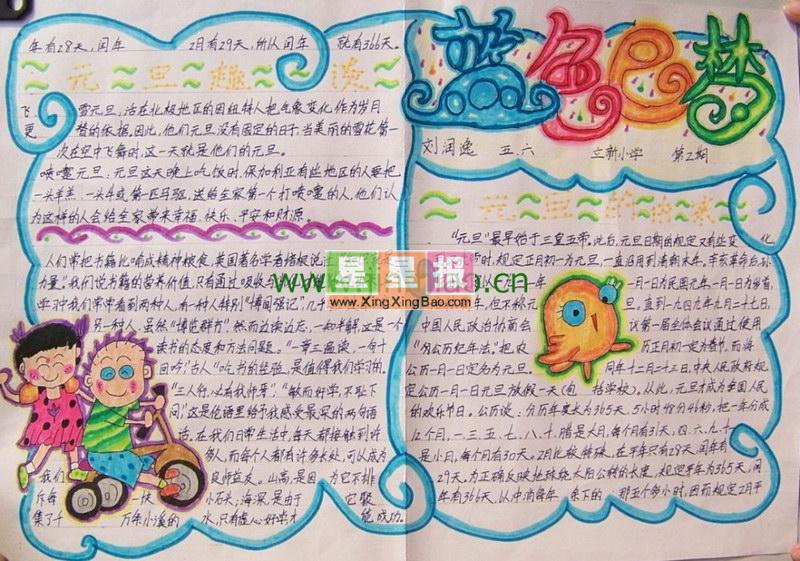 蓝色之梦
刘润逸 五.六 立新小学 第2期
元旦的由来
"元旦"最早始于三皇五帝,此后,元旦日期的规定又有些变化
时,规定正月初一为元旦,一直沿用到清朝末年,辛亥革命后孙
一月一日为民国元年一月一日为春省,
年,但不称元旦,直到一九四九年九月二十七日,
中国人民政治协商会议第一届全体会议通过使用
"公历纪年法,"把农历正月初一定为春节,而将
公历一月一日定名为元旦. 同年十二月二十三日,中央人民政府规
定公历一月一日元旦放假一天(包括学校)。从此,元旦才成为全国人民
的欢乐节日。公历说:分历年度久为365天,5小时49分46秒,把一年分成
12个月,一、三、五、七、八、十、腊是大月,每个月有31天,四、六、九、十一
是小月,每个月有30天。2月比较特殊,在平年只有28天,闰年有
29天,为正确反映地球绕太阳公转的长度,规定平年为365天,闰
年有366天,从中消每年余下的那五个多小时,因而规定2月平
年有28天,闰年2月有29天,所以闰年就有366天。
元旦趣谈
飞雪元旦:活在北极地区的因纽特人把气象变化作为岁月
更替的依据,因此,他们元旦没有固定的日子,当美丽的雪花第一
次在空中飞舞时,这一天就是他们的元旦。
喷嚏元旦:元旦这天晚上吃饭时,保加利亚有些地区的人要把
一头羊羔、一头牛或第一匹马驹,送给全家第一个打喷嚏的人,他们认
为这样的人会给全家带来幸福、快乐、平安和财源。
人们常把书籍比喻成精神粮食,英国著名学者培根说过
力量"。我们说书籍的营养价值,只有通过吸收
学习中我们常常看到两种人,有一种人特别"博闻强记",几乎
另一种人,虽然"博览群书",然而边读边忘,一知半解,这是一个
读书的态度和方法问题。"一章三遍读,一句十
回吟,"古人"吃"书的经验,是值得我们学习的。
"三人行,必有我师焉","敏而好学,不耻下
问"这是伦语里给予我感受最深的两句语
话。在我们日常生活中,每天都接触到许
多人,而每个人都有许多长处,可以成为
我们良师益友。山高,是因为它不排
斥每一块小石头,海深,是由于它聚
集了千万年小溪的水,只有虚心好学才能成功。
星星报
www. .cn
www.XingXingBao.com